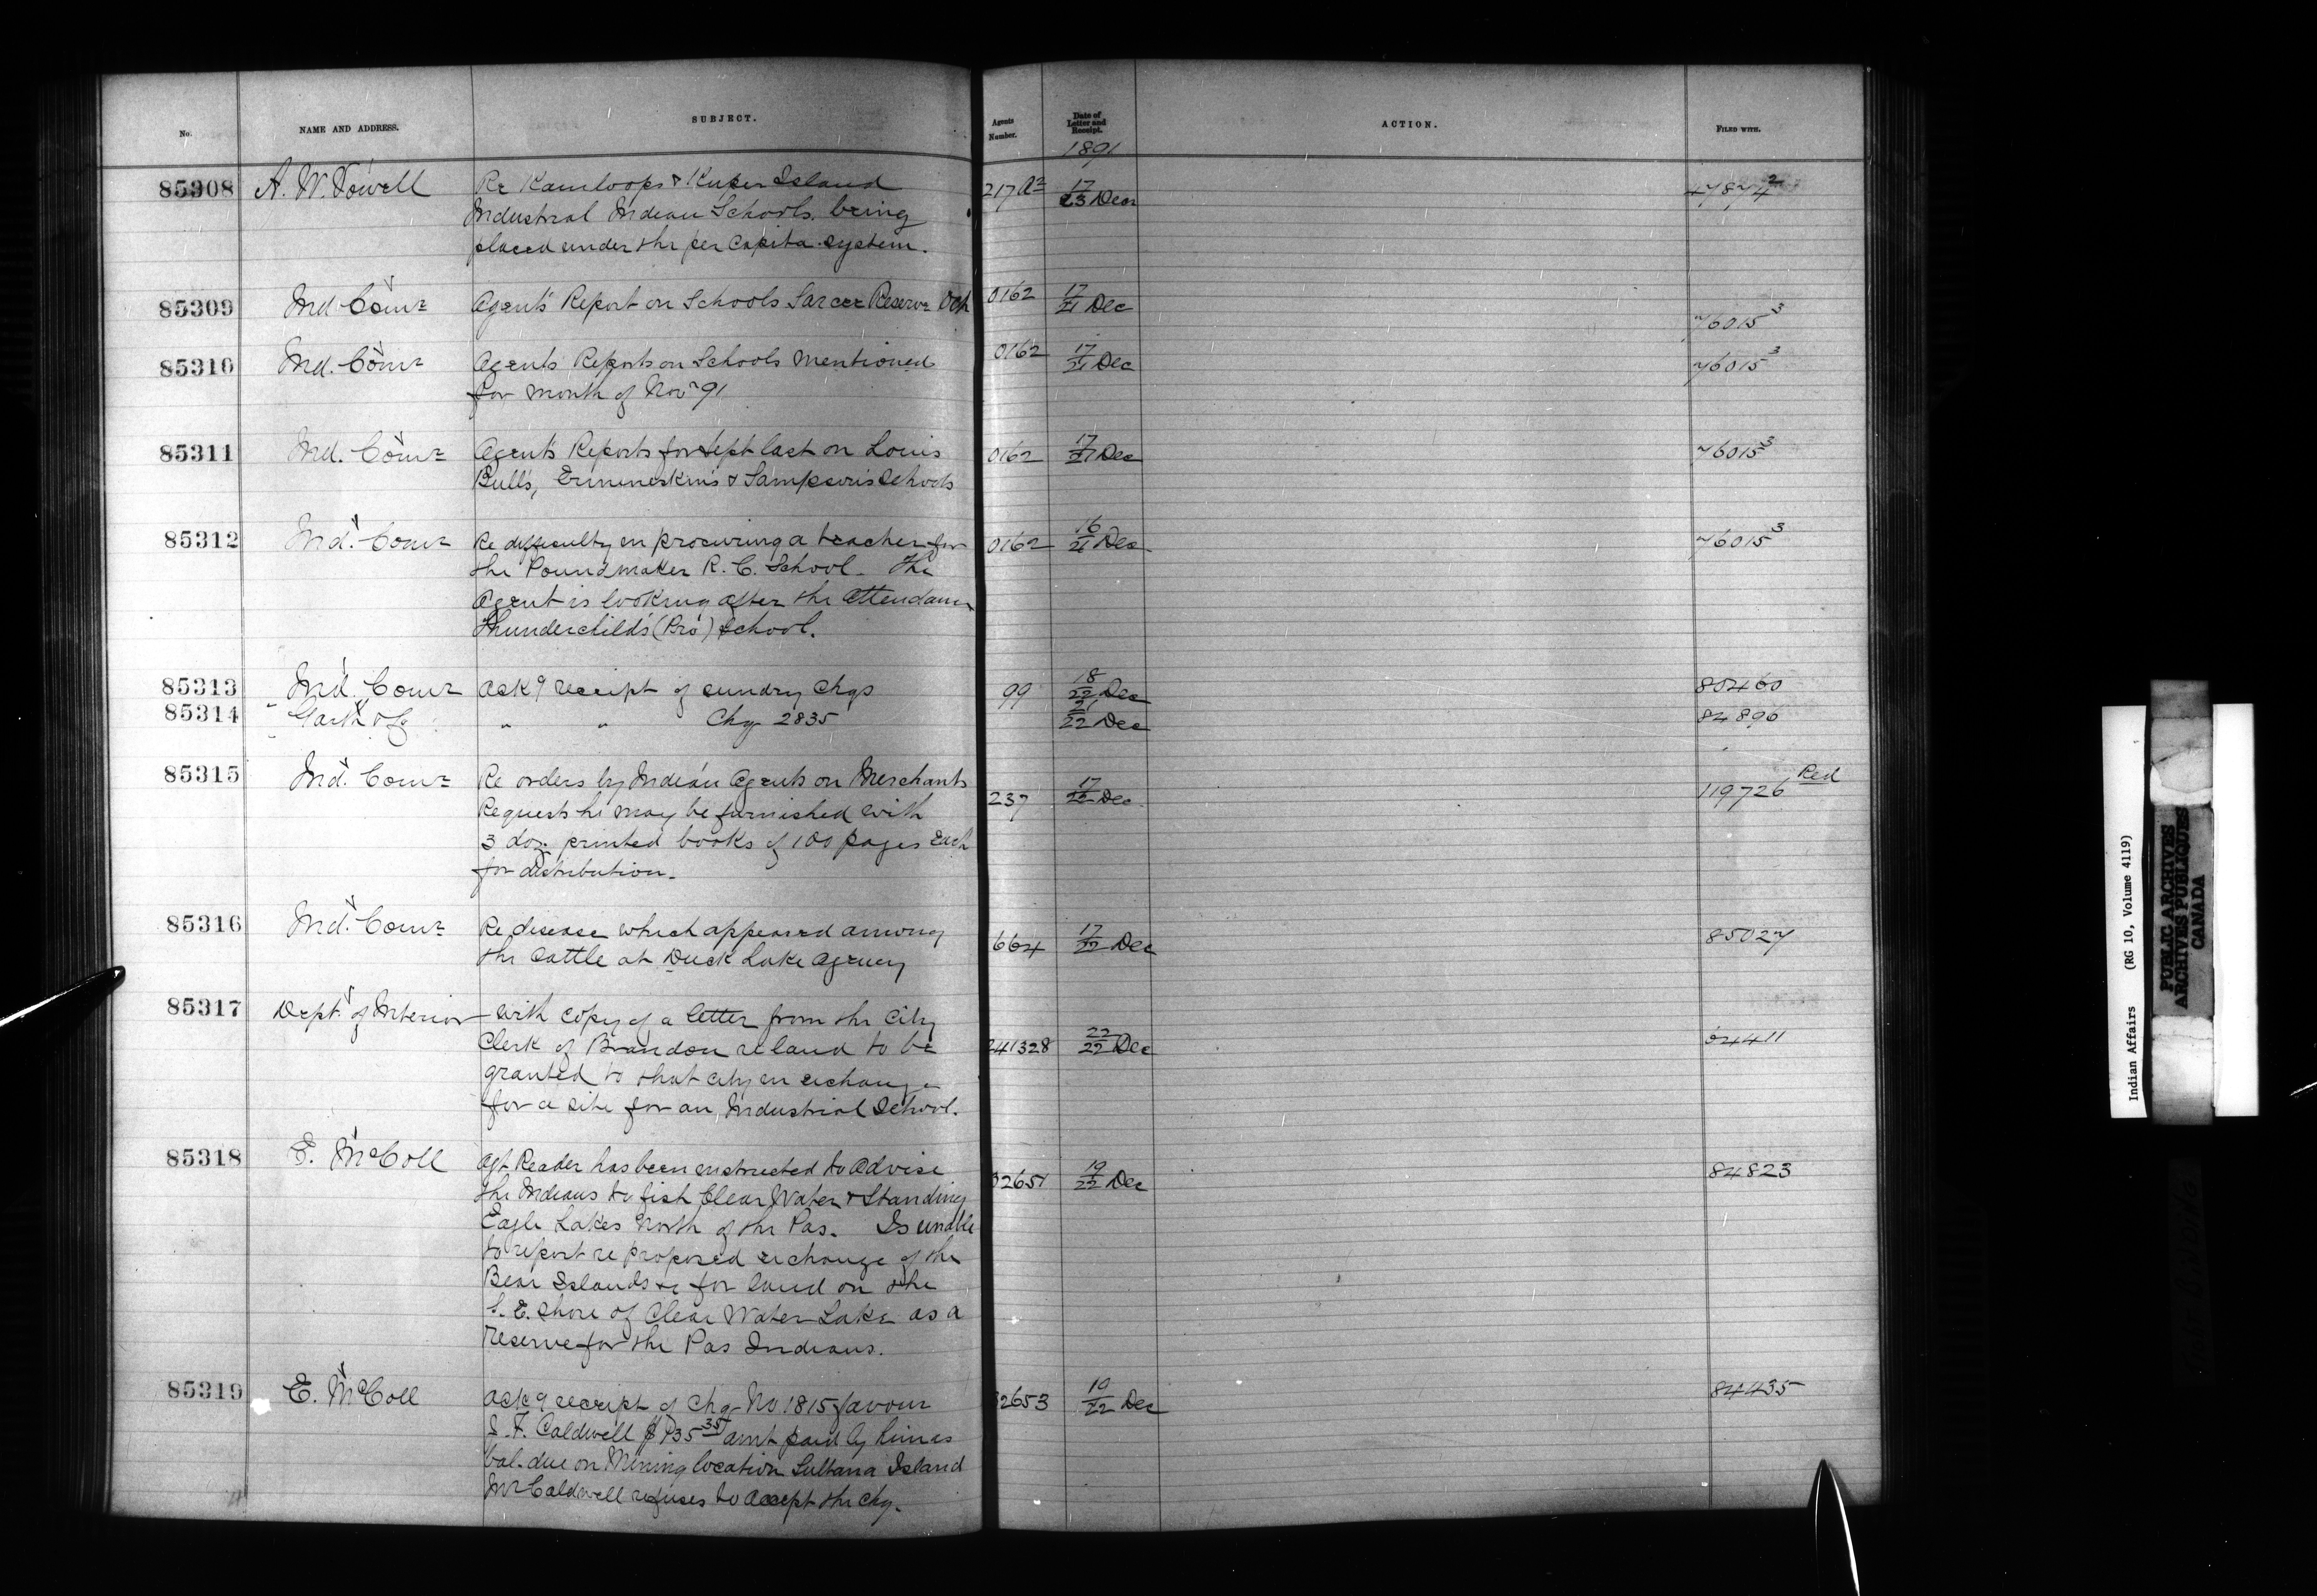 No. NAME AND ADDRESS. SUBJECT. Agents Number. Date of Letter and Receipt. ACTION. FILED WITH.
1891
85308 A. W. Vowell Re Kamloops & Kuper Island 217 A2 17/23 Decr 47874 2
Industrial Indian Schools being
placed under the per Capita system.
85309 Ind Comr Agent's Report on Schools Sarcee Reserve Oct 0162 17/21 Dec 76015 3
85310 Ind. Comr Agents Reports on Schools mentioned 0162 17/21 Dec 76015 3
for month of Novr 91
85311 Ind. Comr Agent's Reports for Sept last on Louis 0162 17/21 Dec 76015 3
Bull's, Ermineskin's & Sampson's Schools
85312 Ind. Comr Re difficulty in procuring a teacher for 0162 16/21 Dec 76015 3
the Poundmaker R. C. School. The
Agent is looking after the attendance
Thunderchild's (Pro) School.
85313 Ind. Comr Ackg receipt of sundry Chqs 99 18/22 Dec 80460
85314 Garth & Co " " Chq 2835 21/22 Dec 84896
85315 Ind. Comr Re orders by Indian Agents on Merchants 237 17/22 Dec 119726 Red
Requests he may be furnished with
3 doz. printed books of 100 pages Each
for distribution.
85316 Ind. Comr Re disease which appeared among 664 17/22 Dec 85027
the Cattle at Duck Lake Agency
85317 Dept. of Interior With copy of a letter from the City 241328 22/22 Dec 64411
Clerk of Brandon re land to be
granted to that city in exchange
for a site for an Industrial School.
85318 E. McColl Agt Reader has been instructed to advise 2651 19/22 Dec 84823
the Indians to fish Clear Water & Standing
Eagle Lakes North of the Pas. Is unable
to report re proposed exchange of the
Bear Islands &c for land on the
S. E. shore of Clear Water Lake as a
reserve for the Pas Indians.
85319 E. McColl Ackg receipt of Chq No 1815 favour 2653 10/22 Dec 84435
J. F. Caldwell $135 35 amt paid by him as
bal. due on Mining location Sultana Island
Mr Caldwell refuses to accept the chq.
Indian Affairs (RG 10, Volume 4119)
PUBLIC ARCHIVES
ARCHIVES PUBLIQUES
CANADA